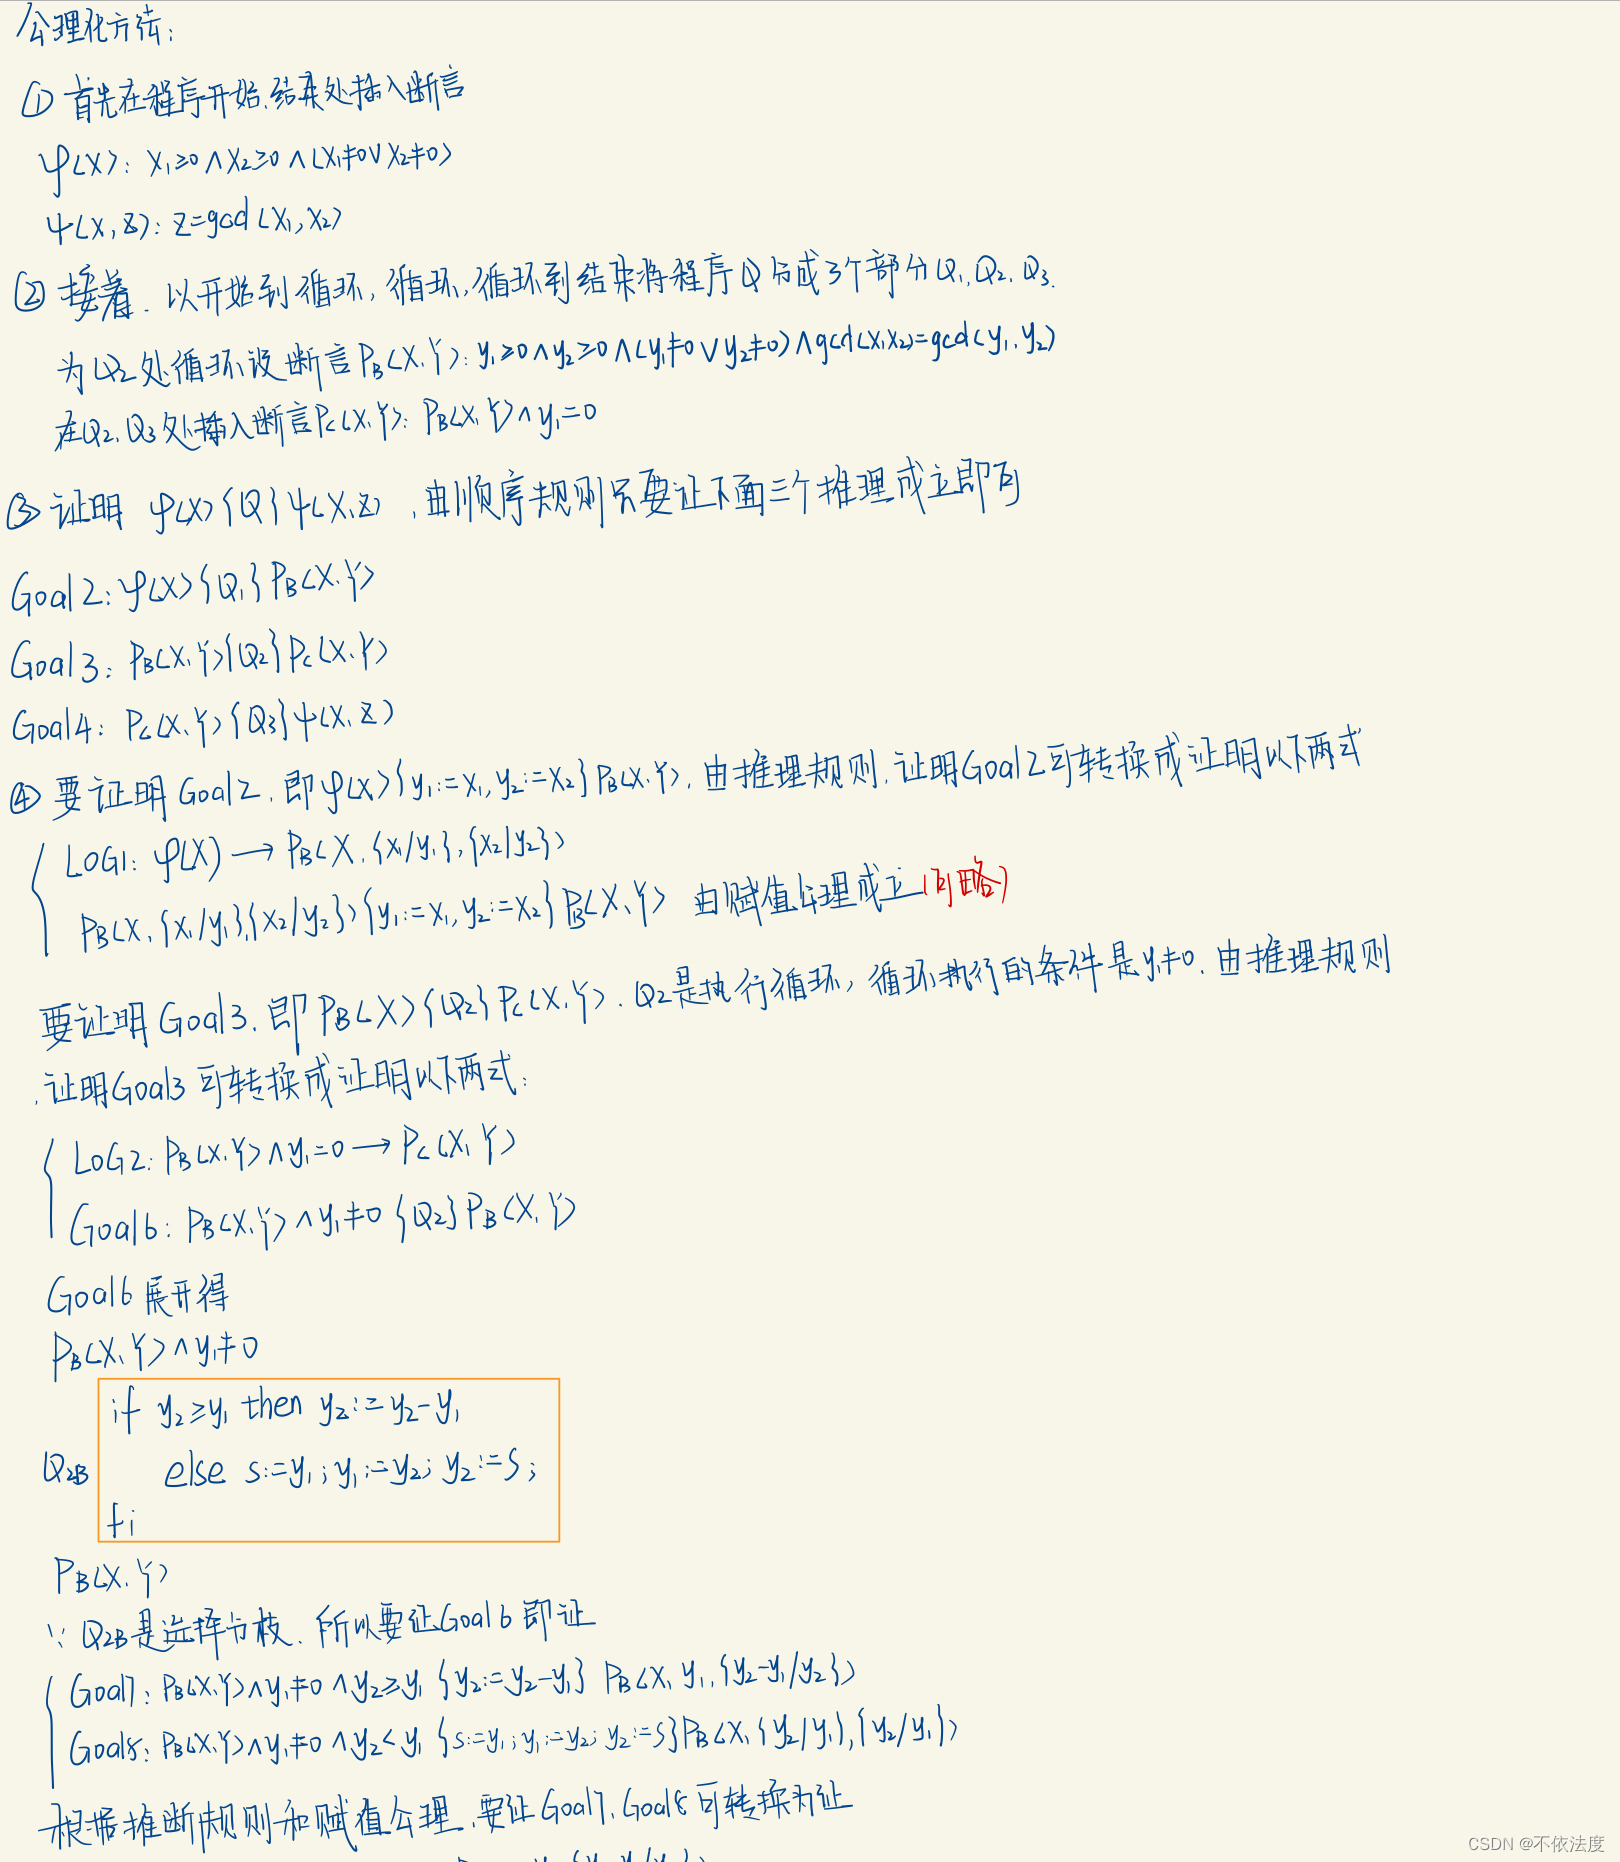 公理化方法：
① 首先在程序开始、结束处插入断言
φ(X): x₁≥0∧x₂≥0∧(x₁≠0∨x₂≠0)
ψ(X,Z): z=gcd(x₁,x₂)
② 接着，以开始到循环，循环，循环到结束将程序Q分成3个部分Q₁,Q₂,Q₃.
为Q₂处循环设断言P_B(X,Y): y₁≥0∧y₂≥0∧(y₁≠0∨y₂≠0)∧gcd(x₁,x₂)=gcd(y₁,y₂)
在Q₂,Q₃处插入断言P_C(X,Y): P_B(X,Y)∧y₁=0
③ 证明 φ(X){Q}ψ(X,Z)，由顺序规则只要证下面三个推理成立即可
Goal2: φ(X){Q₁}P_B(X,Y)
Goal3: P_B(X,Y){Q₂}P_C(X,Y)
Goal4: P_C(X,Y){Q₃}ψ(X,Z)
④ 要证明Goal2，即φ(X){y₁:=x₁,y₂:=x₂}P_B(X,Y)，由推理规则，证明Goal2可转换成证明以下两式
LOG1: φ(X)→P_B(X,{x₁/y₁},{x₂/y₂})
P_B(X,{x₁/y₁},{x₂/y₂}){y₁:=x₁,y₂:=x₂}P_B(X,Y) 由赋值公理成立(可略)
要证明Goal3，即P_B(X){Q₂}P_C(X,Y)．Q₂是执行循环，循环执行的条件是y₁≠0．由推理规则
，证明Goal3可转换成证明以下两式：
LOG2: P_B(X,Y)∧y₁=0→P_C(X,Y)
Goal6: P_B(X,Y)∧y₁≠0{Q₂}P_B(X,Y)
Goal6展开得
P_B(X,Y)∧y₁≠0
if y₂≥y₁ then y₂:=y₂-y₁
Q₂B else s:=y₁;y₁:=y₂;y₂:=s;
fi
P_B(X,Y)
∵Q₂B是选择分枝，所以要证Goal6即证
Goal7: P_B(X,Y)∧y₁≠0∧y₂≥y₁{y₂:=y₂-y₁} P_B(X,y₁,{y₂-y₁/y₂})
Goal8: P_B(X,Y)∧y₁≠0∧y₂<y₁{s:=y₁;y₁:=y₂;y₂:=s}P_B(X,{y₂/y₁},{y₂/y₁})
根据推断规则和赋值公理，要证Goal7,Goal8可转换为证
CSDN @不依法度